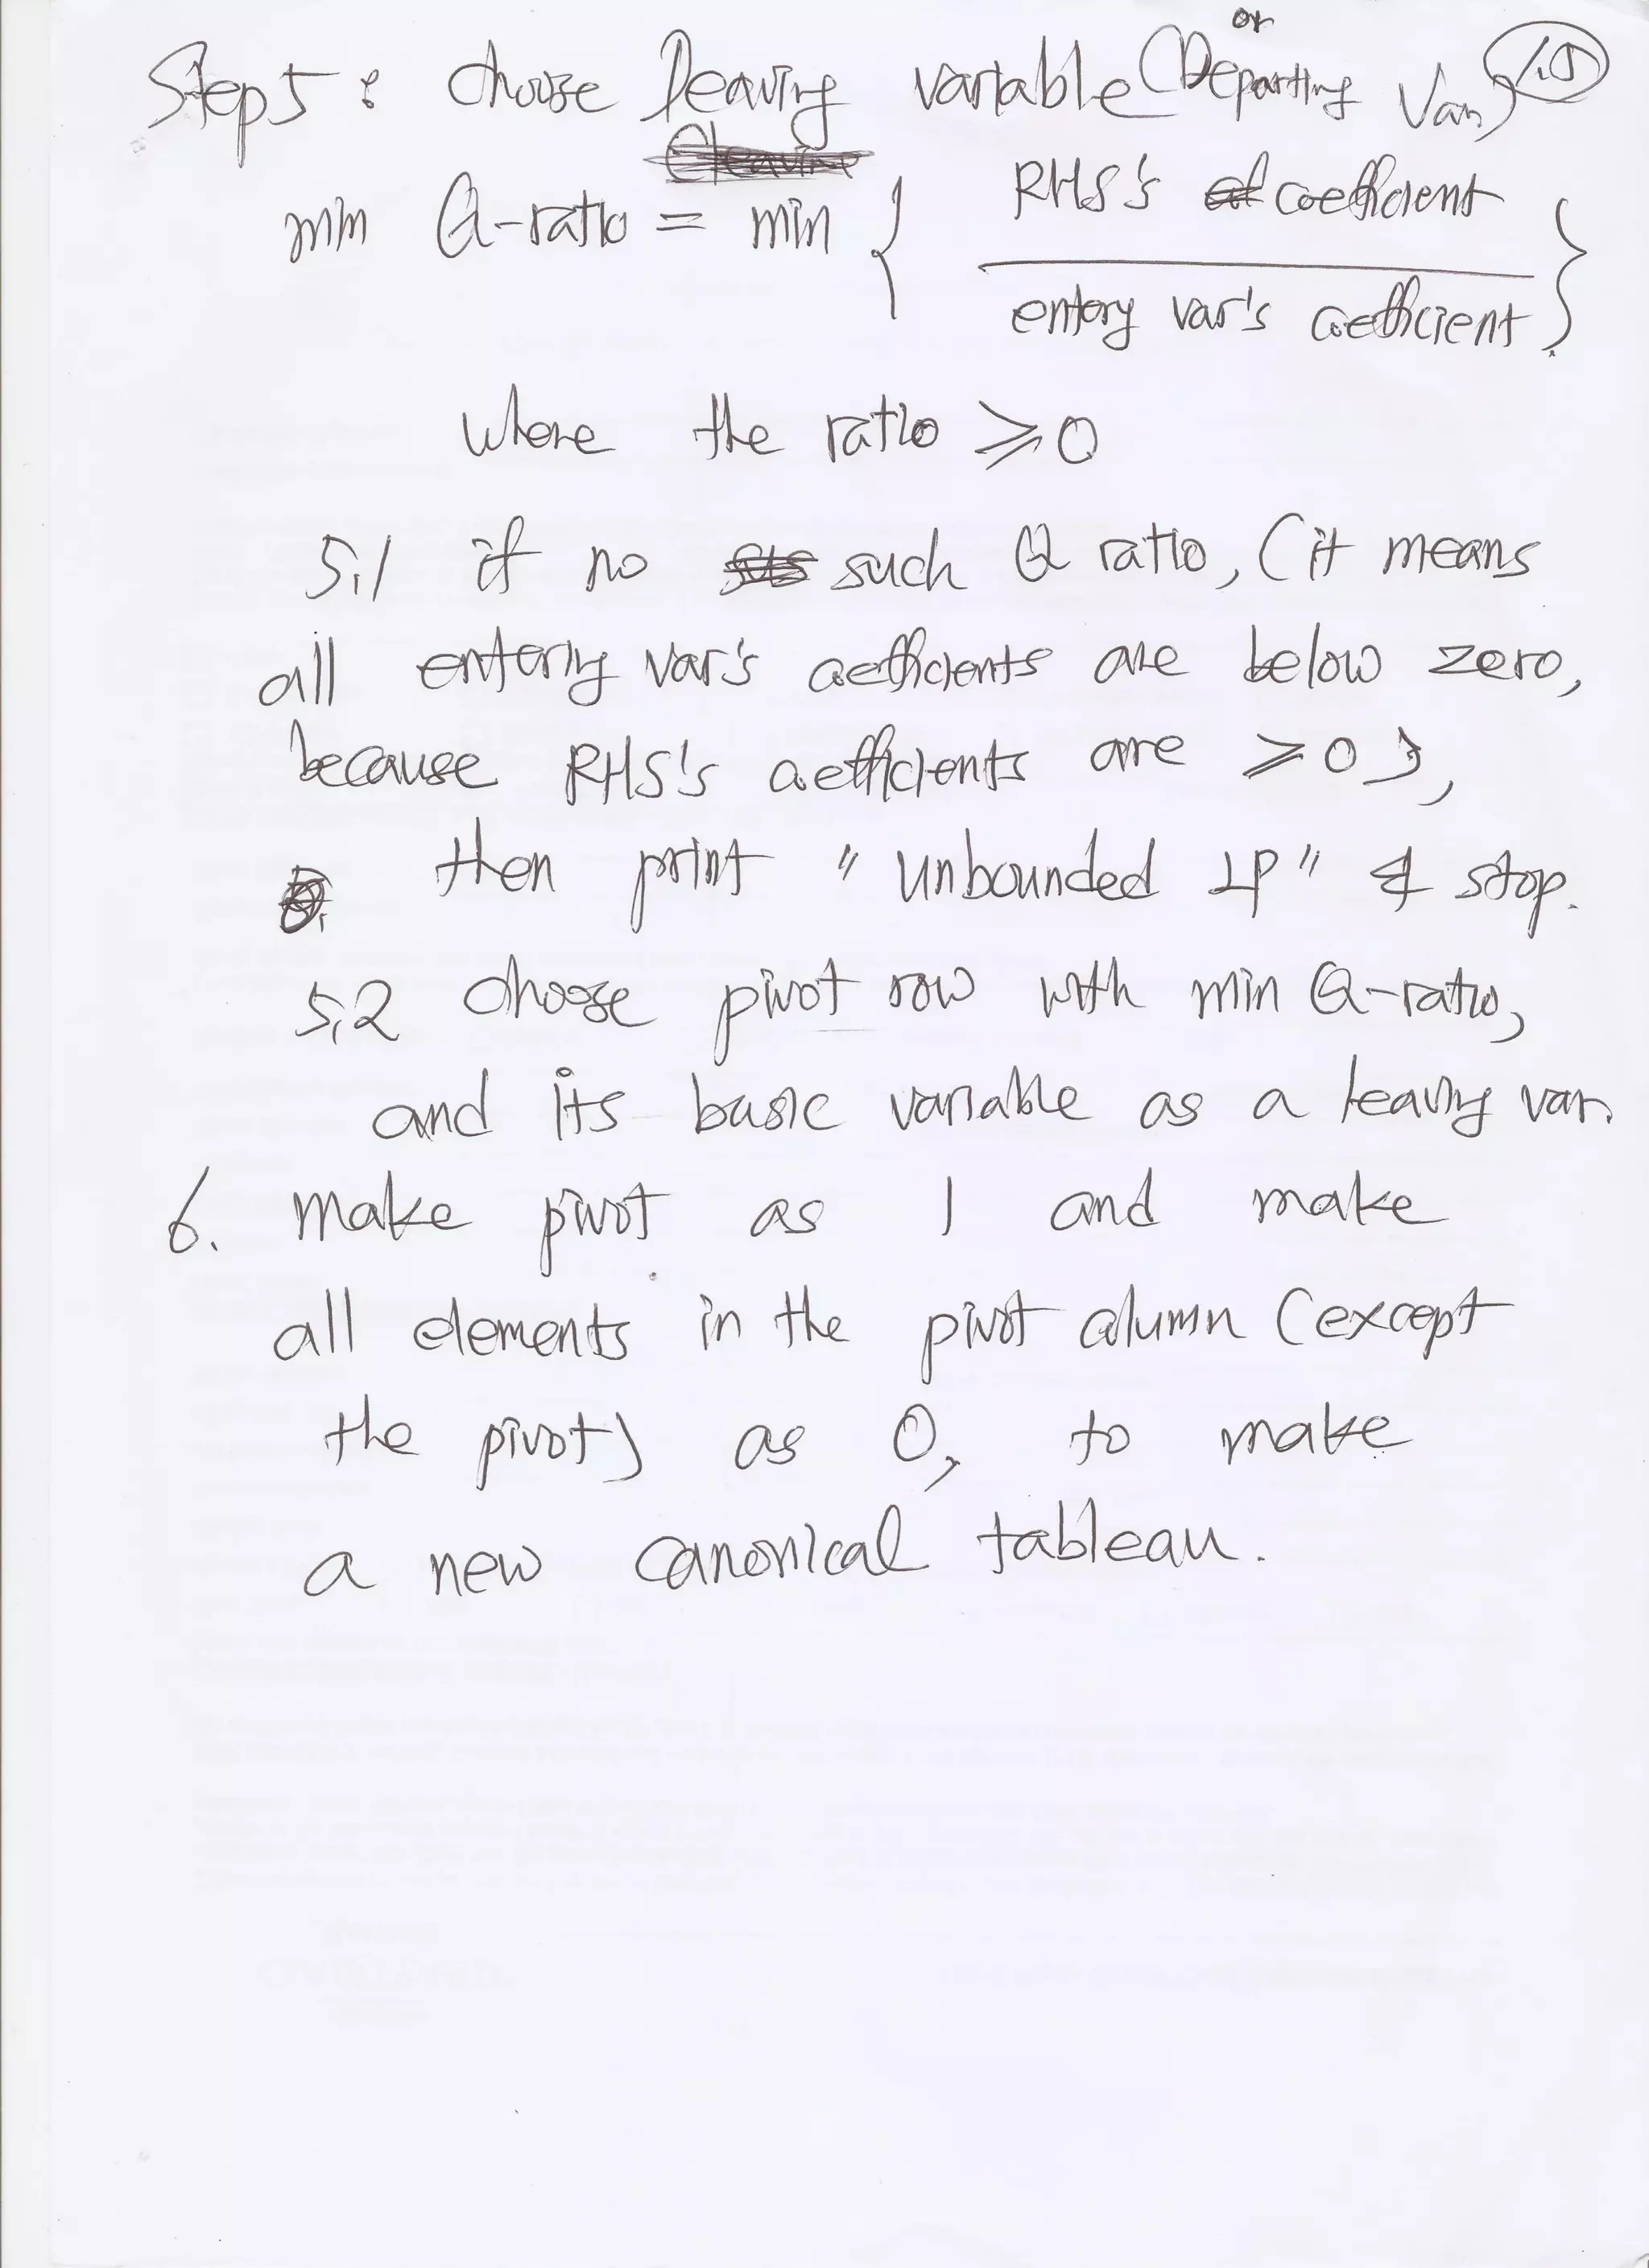 or
Step 5 : choose leaving variable (Departing Var)
min Q-ratio = min { RHS's coefficient
entery var's coefficient }
where the ratio ≥ 0
5.1 if no such Q ratio, (it means
all entering var's coefficients are below zero,
because RHS's coefficients are ≥ 0),
then print " unbounded LP " & stop.
5.2 choose pivot row with min Q-ratio,
and its basic variable as a leaving var.
6. make pivot as 1 and make
all elements in the pivot column (except
the pivot) as 0, to make
a new canonical tableau.